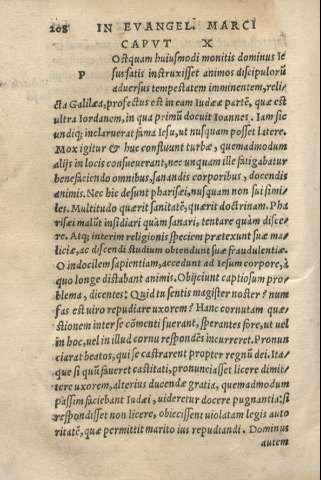 208 IN EVANGEL. MARCI
CAPVT X
POstquam huiusmodi monitis dominus Ie
sus satis instruxisset animos discipulorũ
adversus tempestatem imminentem, reli⸗
cta Galilæa, profectus est in eam Iudææ partẽ, quæ est
ultra Iordanem, in qua primũ docuit Ioannes. Iam sic
undiq; inclaruerat fama Iesu, ut nusquam posset latere.
Mox igitur & huc confluunt turbæ, quemadmodum
alijs in locis consueverant, nec unquam ille fatigabatur
benefaciendo omnibus, sanandis corporibus, docendis
animis. Nec hic desunt pharisei, nusquam non sui simi⸗
les. Multitudo quærit sanitatẽ, quærit doctrinam. Pha
risæi malũt insidiari quàm sanari, tentare quàm disce⸗
re. Atq; interim religionis speciem prætexunt suæ ma⸗
liciæ, ac discendi studium obtendunt suæ fraudulentiæ.
O indocilem sapientiam, accedunt ad Iesum corpore, à
quo longe distabant animis. Obijciunt captiosum pro⸗
blema, dicentes: Quid tu sentis magister noster? num
fas est uiro repudiare uxorem? Hanc cornutam quæ⸗
stionem inter se cõmenti fuerant, sperantes fore, ut uel
in hoc, uel in illud cornu respondẽs incurreret. Pronun
ciarat beatos, qui se castrarent propter regnũ dei. Ita⸗
que si quũ faueret castitati, pronunciasset licere dimit⸗
tere uxorem, alterius ducendæ gratia, quemadmodum
passim faciebant Iudæi, uideretur docere pugnantia: si
respondisset non licere, obiecissent uiolatam legis auto
ritatẽ, quæ permittit marito ius repudiandi. Dominus
autem